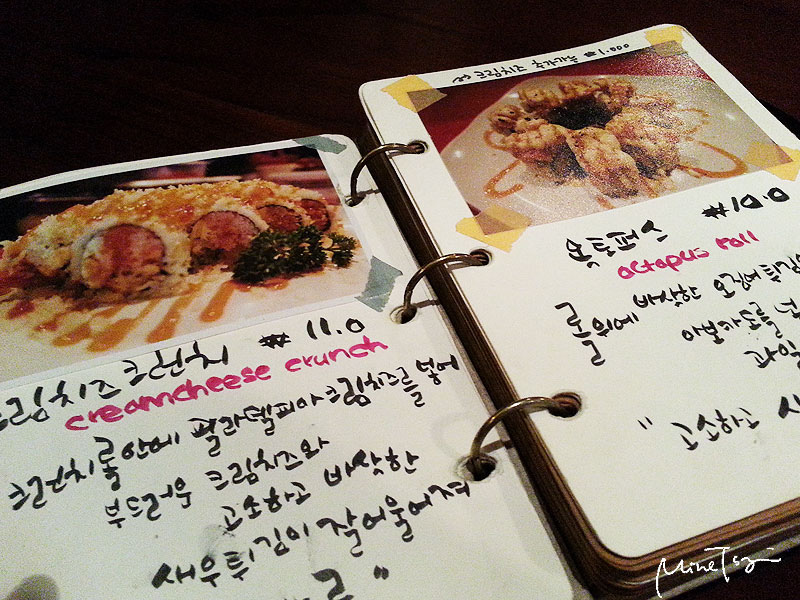 크림치즈 크런치 ₩ 11.0
creamcheese crunch
크런치롤안에 필라델피아크림치즈를 넣어
부드러운 크림치즈와
고소하고 바삭한
새우튀김이 잘어울어져
크림치즈 추가가능 ₩1.000
옥토퍼스 ₩10.0
octopus roll
롤위에 바삭한 오징어튀김
아보카도를
과일
"고소하고